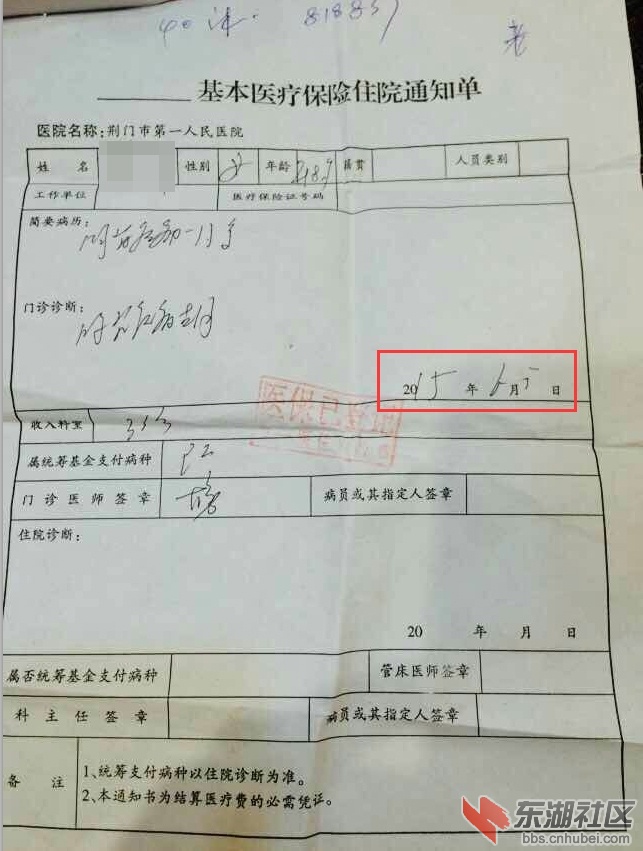 40床. 818857
老
基本医疗保险住院通知单
医院名称:荆门市第一人民医院
姓 名 性别 女 年龄 籍贯 人员类别
工作单位 医疗保险证号码
简要病历:
门诊诊断:
2015年6月5日
医保已登记
收入科室
属统筹基金支付病种
门诊医师签章 病员或其指定人签章
住院诊断:
20 年 月 日
属否统筹基金支付病种 管床医师签章
科主任签章 病员或其指定人签章
备 注 1、统筹支付病种以住院诊断为准。
2、本通知书为结算医疗费的必需凭证。
东湖社区
bbs.cnhubei.com